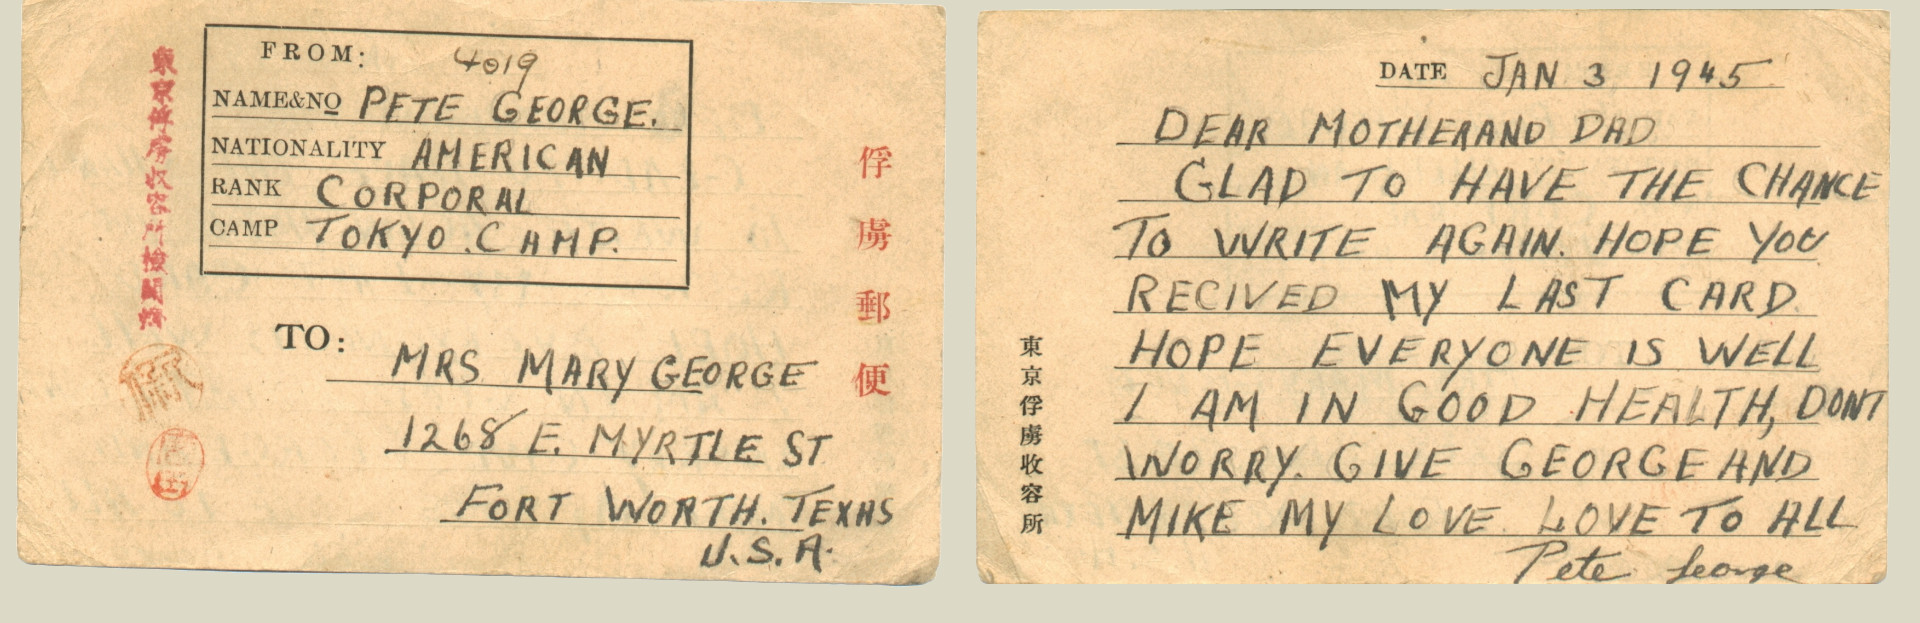 東京俘虜収容所検閲濟
FROM:
4019
NAME&NO PETE GEORGE.
NATIONALITY AMERICAN
RANK CORPORAL
CAMP TOKYO. CAMP.
俘虜郵便
TO:
MRS MARY GEORGE
1268 E. MYRTLE ST
FORT WORTH. TEXAS
U.S.A.
DATE JAN 3 1945
DEAR MOTHER AND DAD
GLAD TO HAVE THE CHANCE
TO WRITE AGAIN. HOPE YOU
RECIVED MY LAST CARD.
HOPE EVERYONE IS WELL
I AM IN GOOD HEALTH, DONT
WORRY. GIVE GEORGE AND
MIKE MY LOVE. LOVE TO ALL
Pete George
東京俘虜收容所